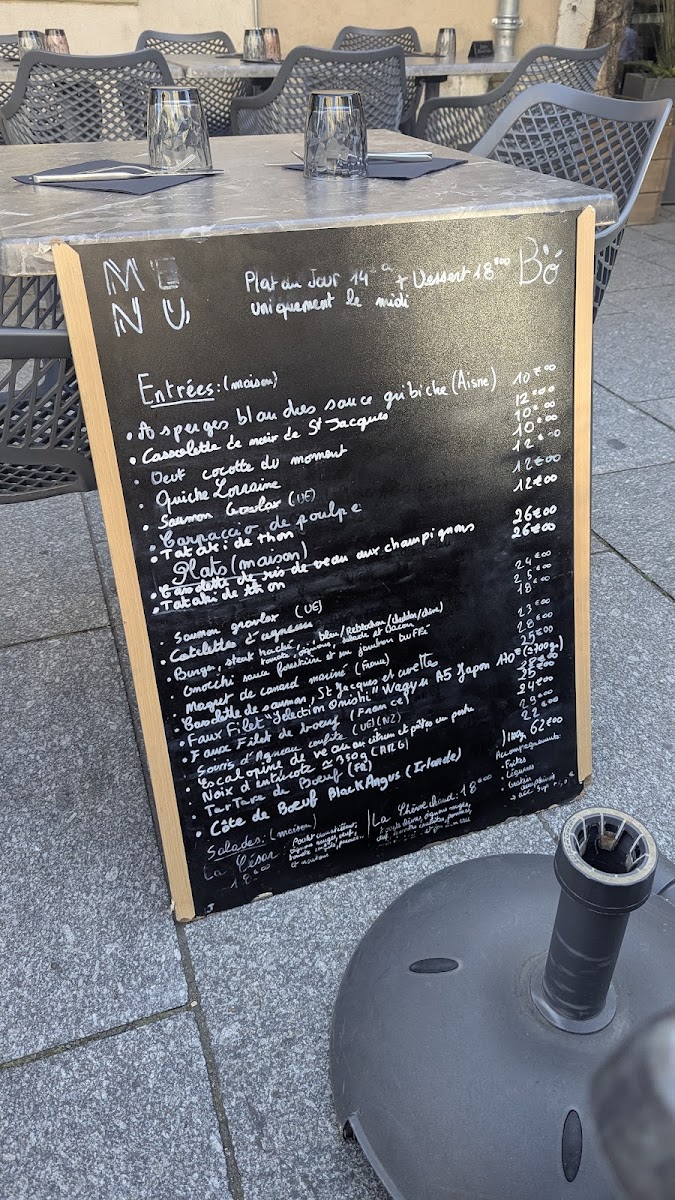 MENU
Plat du Jour 14 + Dessert 18€00
uniquement le midi
Bô
Entrées: (maison)
• Asperges blanches sauce gribiche (Aisne) 10€00
• Cassolette de noix de St Jacques 12€00
• Oeuf cocotte du moment 10€00
• Quiche Lorraine 10€00
• Saumon Gravlax (UE) 12€00
• Carpaccio de poulpe 12€00
• Tataki de thon 12€00
Plats (maison)
• Cassolette de ris de veau aux champignons 26€00
• Tataki de thon 26€00
Saumon gravlax (UE) 24€00
• Cotelettes d'agneau 25€00
• Burger, steak haché, bleu/Reblochon/cheddar/chèvre 18€00
tomate, oignons, salade et Bacon
Gnocchi sauce forestière et son jambon truffé 23€00
Magret de canard mariné (France) 28€00
• Cassolette de saumon, St Jacques et crevettes 25€00
• Faux Filet "Selection Onishi" Wagyu A5 Japon 170€ (±300g)
• Faux Filet de boeuf (France)
• Souris d'Agneau confite (UE)(NZ)
• Escalopine de veau au citron et pâtes au pesto 24€00
• Noix d'entrecôte ≈ 350g (ARG) 29€00
• Tartare de Boeuf (FR) 22€00
• Côte de Boeuf Black Angus (Irlande) 62€00
Accompagnements:
• Frites
• Légumes
• Gratin dauphinois
Salades: (maison)
La César: Poulet croustillant,
oignons rouges, oeuf,
tomate
et croutons
18€00
La Chèvre chaud: 18€00